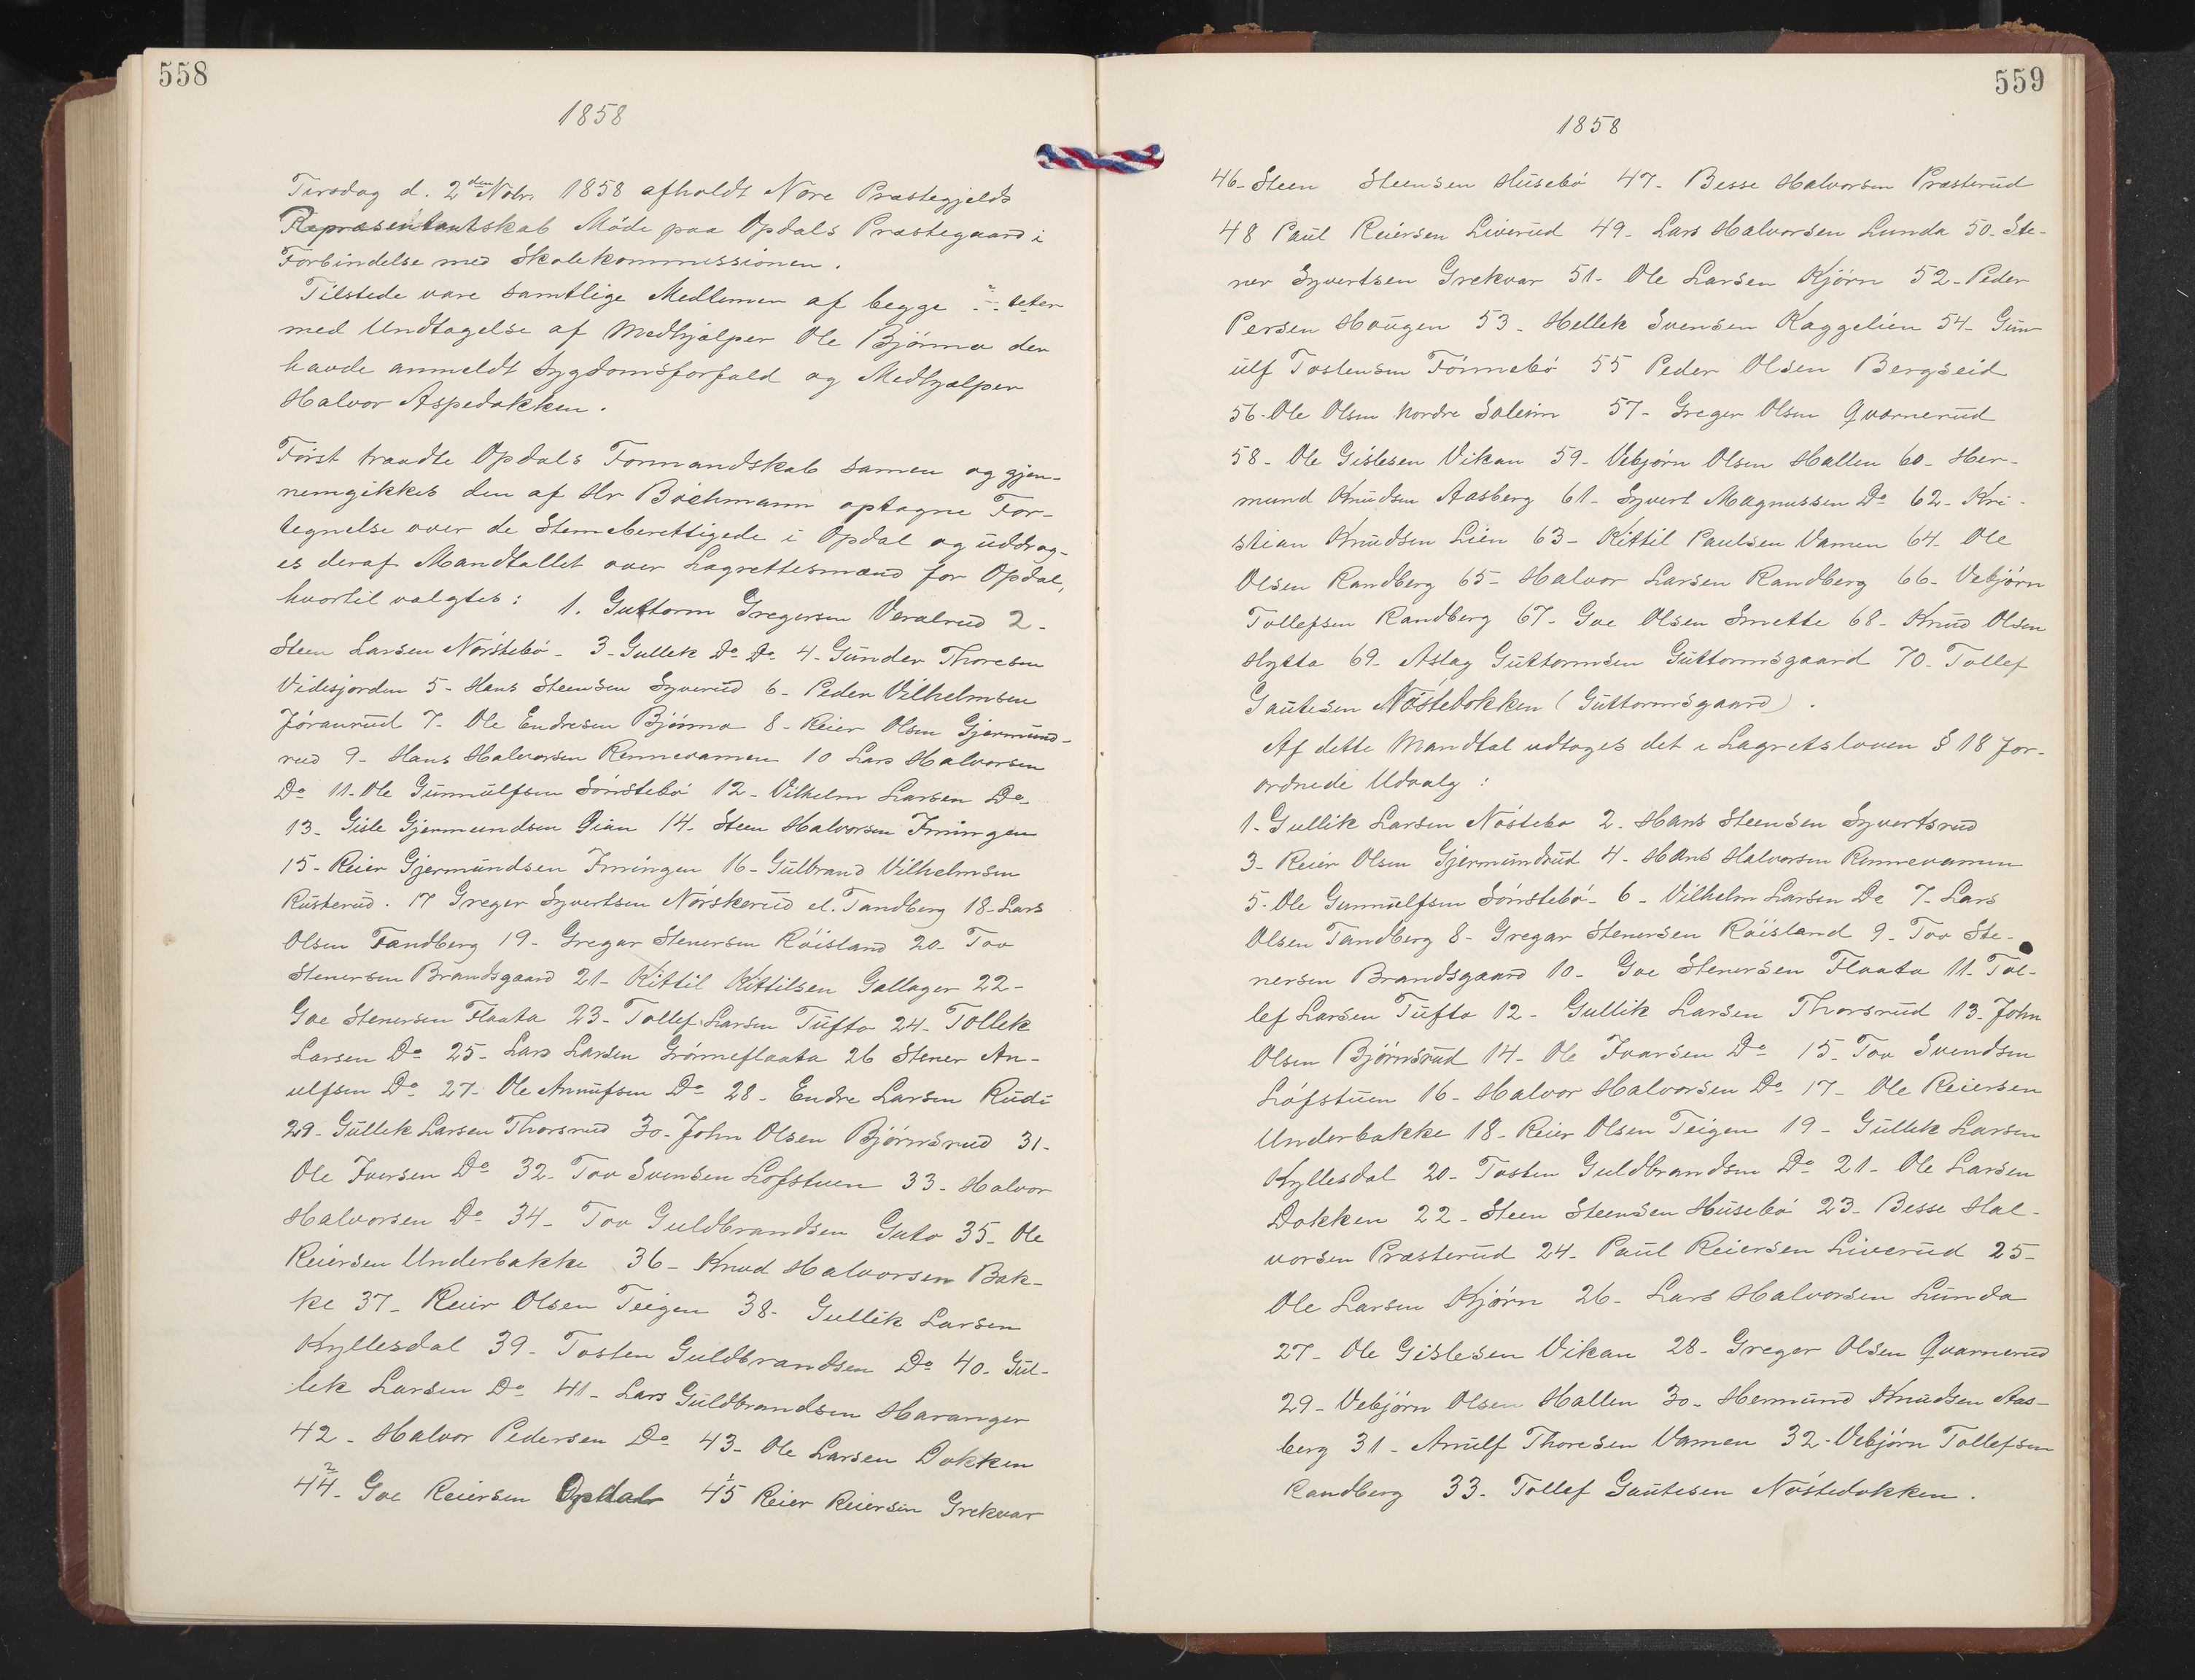 558
1858
Tirsdag d. 2den Nobr 1858 afholdt Nore Præstegjelds
Repræsentantskab Møde paa Opdals Præstegaard i
Forbindelse med Skolekommissionen.
Tilstede vare samtlige Medlemmer af begge teter
med Undtagelse af Medhjælper Ole Bjørnma der
havde anmeldt Sygdomsforfald og Medhjælper
Halvor Aspedokken.
Først traadte Opdals Formandskab samen og gjen-
nemgikkes den af Hr Bochmann optagne For-
tegnelse over de Stemeberettigede i Opdal og uddrag-
es deraf Mandtallet over Lagrettesmænd for Opdal,
hvortil valgtes: 1. Guttorm Gregersen Veralrud 2-
Steen Larsen Nørstebø- 3- Gullek Do Do 4- Gunder Thoresen
Vidisjorden 5- Hans Steensen Syverud 6- Peder Vilhelmsen
Jøranrud 7- Ole Endresen Bjørnma 8- Reier Olsen Gjermund-
rud 9- Hans Halvorsen Rennevamen 10 Lars Halvorsen
Do 11- Ole Gunnulfsen Sønstebø 12- Vilhelm Larsen Do-
13- Gisle Gjermundsen Gian 14- Steen Halvorsen Imingen
15- Reier Gjermundsen Imingen 16- Gulbrand Vilhelmsen
Rusterud. 17 Greger Syvertsen Nørskerud el. Tandberg 18- Lars
Olsen Tandberg 19- Gregar Stenersen Røisland 20- Tov
Stenersen Brandsgaard 21- Kittil Kittilsen Gallager 22-
Goe Stenersen Flaata 23- Tollef Larsen Tufto 24- Tollek
Larsen Do 25- Lars Larsen Grønneflaata 26 Stener An-
ulfsen Do 27- Ole Annufsen Do 28- Endre Larsen Rudi
29- Gullek Larsen Thorsrud 30- John Olsen Bjørnsrud 31-
Ole Iversen Do 32- Tov Svensen Lofstuen 33- Halvor
Halvorsen Do 34- Tov Guldbrandsen Guto 35- Ole
Reiersen Underbakke 36- Knud Halvorsen Bak-
ke 37- Reier Olsen Teigen 38- Gullik Larsen
Kyllesdal 39- Tosten Guldbrandsen Do 40- Gul-
lek Larsen Do 41- Lars Guldbrandsen Haranger
42- Halvor Pedersen Do 43- Ole Larsen Dokken
2 1
44- Goe Reiersen Opdal 45 Reier Reiersen Grekvar
559
1858
46- Steen Steensen Husebø 47- Besse Halvorsen Præsterud
48 Paul Reiersen Liverud 49- Lars Halvorsen Lunda 50- Ste-
ner Syvertsen Grekvar 51- Ole Larsen Kjørn 52- Peder
Persen Hougen 53- Hellek Svensen Kaggelien 54- Gun
ulf Tostensen Fønnebø 55 Peder Olsen Bergseid
56- Ole Olsen Nordre Søleim 57- Greger Olsen Qvarnerud
58- Ole Gislesen Vikan 59- Vebjørn Olsen Hallen 60- Her-
mund Knudsen Aasberg 61- Syvert Magnussen Do 62- Kri-
stian Knudsen Lien 63- Kittil Paulsen Vamen 64- Ole
Olsen Randberg 65- Halvor Larsen Randberg 66- Vebjørn
Tollefsen Randberg 67- Goe Olsen Smette 68- Knud Olsen
Hytta 69- Aslag Guttormsen Guttormsgaard 70- Tollef
Gautesen Nøstedokken (Guttormsgaard).
Af dette Mandtal udtoges det i Lagretsloven § 18 for-
ordnede Udvalg:
1- Gullik Larsen Nøstebo 2- Hans Steensen Syvertsrud
3- Reier Olsen Gjermundrud 4- Hans Halvorsen Rennevamen
5- Ole Gunnulfsen Sønstebø- 6- Vilhelm Larsen Do 7- Lars
Olsen Tandberg 8- Gregar Stenersen Røisland 9- Tov Ste-
nersen Brandsgaard 10- Goe Stenersen Flaata 11- Tol-
lef Larsen Tufto 12- Gullik Larsen Thorsrud 13- John
Olsen Bjørnsrud 14- Ole Ivarsen Do 15- Tov Svendsen
Lofstuen 16- Halvor Halvorsen Do 17- Ole Reiersen
Underbakke 18- Reier Olsen Teigen 19- Gullek Larsen
Kyllesdal 20- Tosten Guldbrandsen Do 21- Ole Larsen
Dokken 22- Steen Steensen Husebø 23- Besse Hal-
vorsen Præsterud 24- Paul Reiersen Liverud 25-
Ole Larsen Kjørn 26- Lars Halvorsen Lunda
27- Ole Gislesen Vikan 28- Greger Olsen Qvarnerud
29- Vebjørn Olsen Hallen 30- Hermund Knudsen Aas-
berg 31- Anulf Thoresen Vamen 32- Vebjørn Tollefsen
Randberg 33- Tollef Gautesen Nøstedokken.